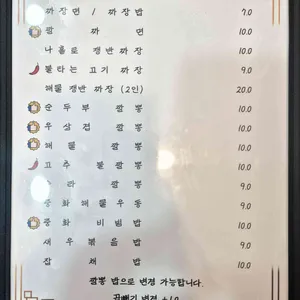 짜장면 / 짜장밥 7.0
짬짜면 10.0
나홀로 쟁반짜장 10.0
불타는 고기 짜장 9.0
해물 쟁반 짜장 (2인) 20.0
순두부 짬뽕 10.0
우삼겹 짬뽕 10.0
해물 짬뽕 10.0
고추 불짬뽕 10.0
짬뽕 9.0
중화해물우동 9.0
중화 비빔밥 10.0
새우볶음밥 9.0
잡채밥 10.0
짬뽕 밥으로 변경 가능합니다.
곱빼기 변경 +1.0